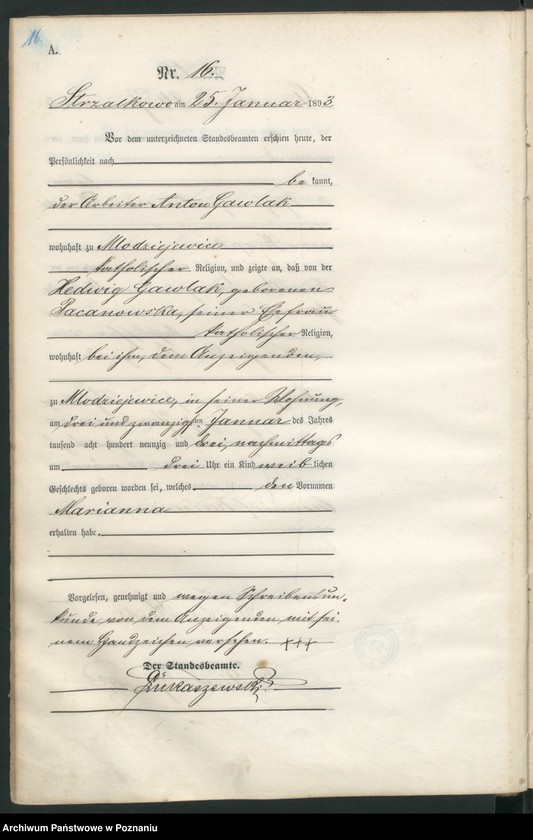 16.
A.
Nr. 16.
Strzalkowo am 25. Januar 1893
Vor dem unterzeichneten Standesbeamten erschien heute, der
Persönlichkeit nach
be kannt,
der Arbeiter Anton Gawlak
wohnhaft zu Mlodziejewice
katholischer Religion, und zeigte an, daß von der
Hedwig Gawlak, geborenen
Pacanowska, seiner Ehefrau
katholischer Religion,
wohnhaft bei ihm, dem Anzeigenden,
zu Mlodziejewice, in seiner Wohnung,
am drei und zwanzigsten Januar des Jahres
tausend acht hundert neunzig und drei, nachmittags
um drei Uhr ein Kind weib lichen
Geschlechts geboren worden sei, welches den Vornamen
Marianna
erhalten habe.
Vorgelesen, genehmigt und wegen Schreibensun-
kunde von dem Anzeigenden mit sei-
nem Handzeichen versehen. +++
Der Standesbeamte.
Lukaszewski
Archiwum Państwowe w Poznaniu